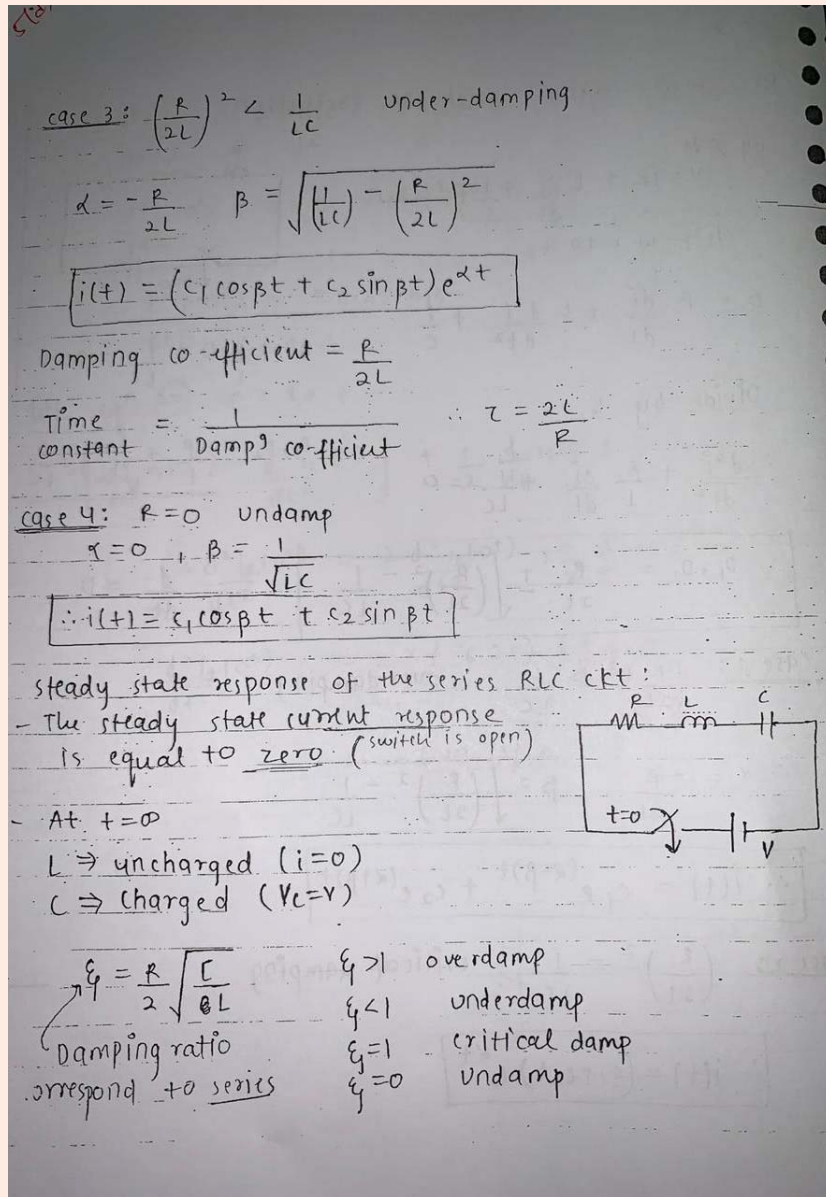 case 3: (R/2L)² < 1/LC under-damping
α = -R/2L β = √((1/LC) - (R/2L)²)
i(t) = (c₁ cosβt + c₂ sinβt) e^αt
Damping co-efficient = R/2L
Time constant = 1/Dampg co-fficient ∴ τ = 2L/R
case 4: R=0 undamp
α=0 , β = 1/√LC
∴ i(t) = c₁ cosβt + c₂ sinβt
steady state response of the series RLC ckt:
- The steady state current response
is equal to zero. (switch is open)
R L C
t=0
V
- At t=∞
L ⇒ uncharged (i=0)
C ⇒ charged (Vc=V)
ξ = R/2 √(C/L) ξ>1 overdamp
ξ<1 underdamp
Damping ratio ξ=1 - critical damp
orrespond to series ξ=0 undamp